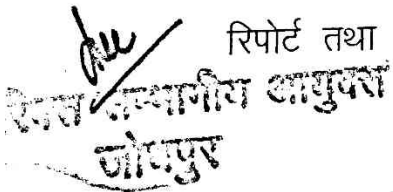 रिपोर्ट तथा
सम्भागीय आयुक्त
जोधपुर